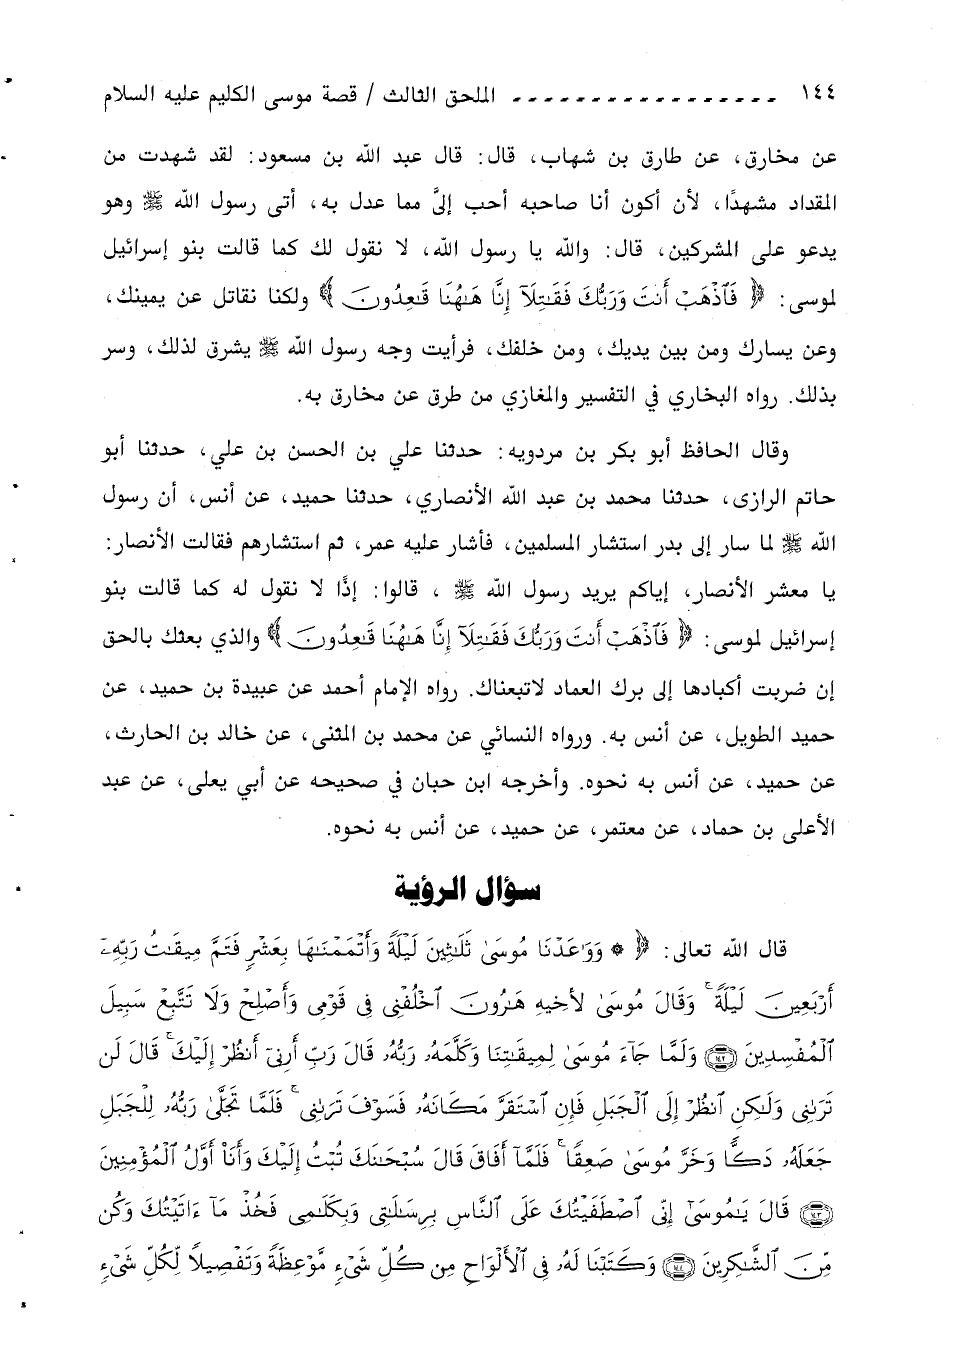 ١٤٤ ----------------- الملحق الثالث / قصة موسى الكليم عليه السلام
عن مخارق، عن طارق بن شهاب، قال: قال عبد الله بن مسعود: لقد شهدت من
المقداد مشهدًا، لأن أكون أنا صاحبه أحب إليَّ مما عدل به، أتى رسول الله ﷺ وهو
يدعو على المشركين، قال: والله يا رسول الله، لا نقول لك كما قالت بنو إسرائيل
لموسى: ﴿ فَٱذْهَبْ أَنتَ وَرَبُّكَ فَقَٰتِلَآ إِنَّا هَٰهُنَا قَٰعِدُونَ ﴾ ولكنا نقاتل عن يمينك،
وعن يسارك ومن بين يديك، ومن خلفك، فرأيت وجه رسول الله ﷺ يشرق لذلك، وسر
بذلك. رواه البخاري في التفسير والمغازي من طرق عن مخارق به.
وقال الحافظ أبو بكر بن مردويه: حدثنا علي بن الحسن بن علي، حدثنا أبو
حاتم الرازى، حدثنا محمد بن عبد الله الأنصاري، حدثنا حميد، عن أنس، أن رسول
الله ﷺ لما سار إلى بدر استشار المسلمين، فأشار عليه عمر، ثم استشارهم فقالت الأنصار:
يا معشر الأنصار، إياكم يريد رسول الله ﷺ ، قالوا: إذًا لا نقول له كما قالت بنو
إسرائيل لموسى: ﴿ فَٱذْهَبْ أَنتَ وَرَبُّكَ فَقَٰتِلَآ إِنَّا هَٰهُنَا قَٰعِدُونَ ﴾ والذي بعثك بالحق
إن ضربت أكبادها إلى برك العماد لاتبعناك. رواه الإمام أحمد عن عبيدة بن حميد، عن
حميد الطويل، عن أنس به. ورواه النسائي عن محمد بن المثنى، عن خالد بن الحارث،
عن حميد، عن أنس به نحوه. وأخرجه ابن حبان في صحيحه عن أبي يعلى، عن عبد
الأعلى بن حماد، عن معتمر، عن حميد، عن أنس به نحوه.
سؤال الرؤية
قال الله تعالى: ﴿ * وَوَٰعَدْنَا مُوسَىٰ ثَلَٰثِينَ لَيْلَةً وَأَتْمَمْنَٰهَا بِعَشْرٍ فَتَمَّ مِيقَٰتُ رَبِّهِۦٓ
أَرْبَعِينَ لَيْلَةً ۚ وَقَالَ مُوسَىٰ لِأَخِيهِ هَٰرُونَ ٱخْلُفْنِى فِى قَوْمِى وَأَصْلِحْ وَلَا تَتَّبِعْ سَبِيلَ
ٱلْمُفْسِدِينَ ﴿١٤٢﴾ وَلَمَّا جَآءَ مُوسَىٰ لِمِيقَٰتِنَا وَكَلَّمَهُۥ رَبُّهُۥ قَالَ رَبِّ أَرِنِىٓ أَنظُرْ إِلَيْكَ ۚ قَالَ لَن
تَرَىٰنِى وَلَٰكِنِ ٱنظُرْ إِلَى ٱلْجَبَلِ فَإِنِ ٱسْتَقَرَّ مَكَانَهُۥ فَسَوْفَ تَرَىٰنِى ۚ فَلَمَّا تَجَلَّىٰ رَبُّهُۥ لِلْجَبَلِ
جَعَلَهُۥ دَكًّا وَخَرَّ مُوسَىٰ صَعِقًا ۚ فَلَمَّآ أَفَاقَ قَالَ سُبْحَٰنَكَ تُبْتُ إِلَيْكَ وَأَنَا۠ أَوَّلُ ٱلْمُؤْمِنِينَ
﴿١٤٣﴾ قَالَ يَٰمُوسَىٰٓ إِنِّى ٱصْطَفَيْتُكَ عَلَى ٱلنَّاسِ بِرِسَٰلَٰتِى وَبِكَلَٰمِى فَخُذْ مَآ ءَاتَيْتُكَ وَكُن
مِّنَ ٱلشَّٰكِرِينَ ﴿١٤٤﴾ وَكَتَبْنَا لَهُۥ فِى ٱلْأَلْوَاحِ مِن كُلِّ شَىْءٍ مَّوْعِظَةً وَتَفْصِيلًا لِّكُلِّ شَىْءٍ